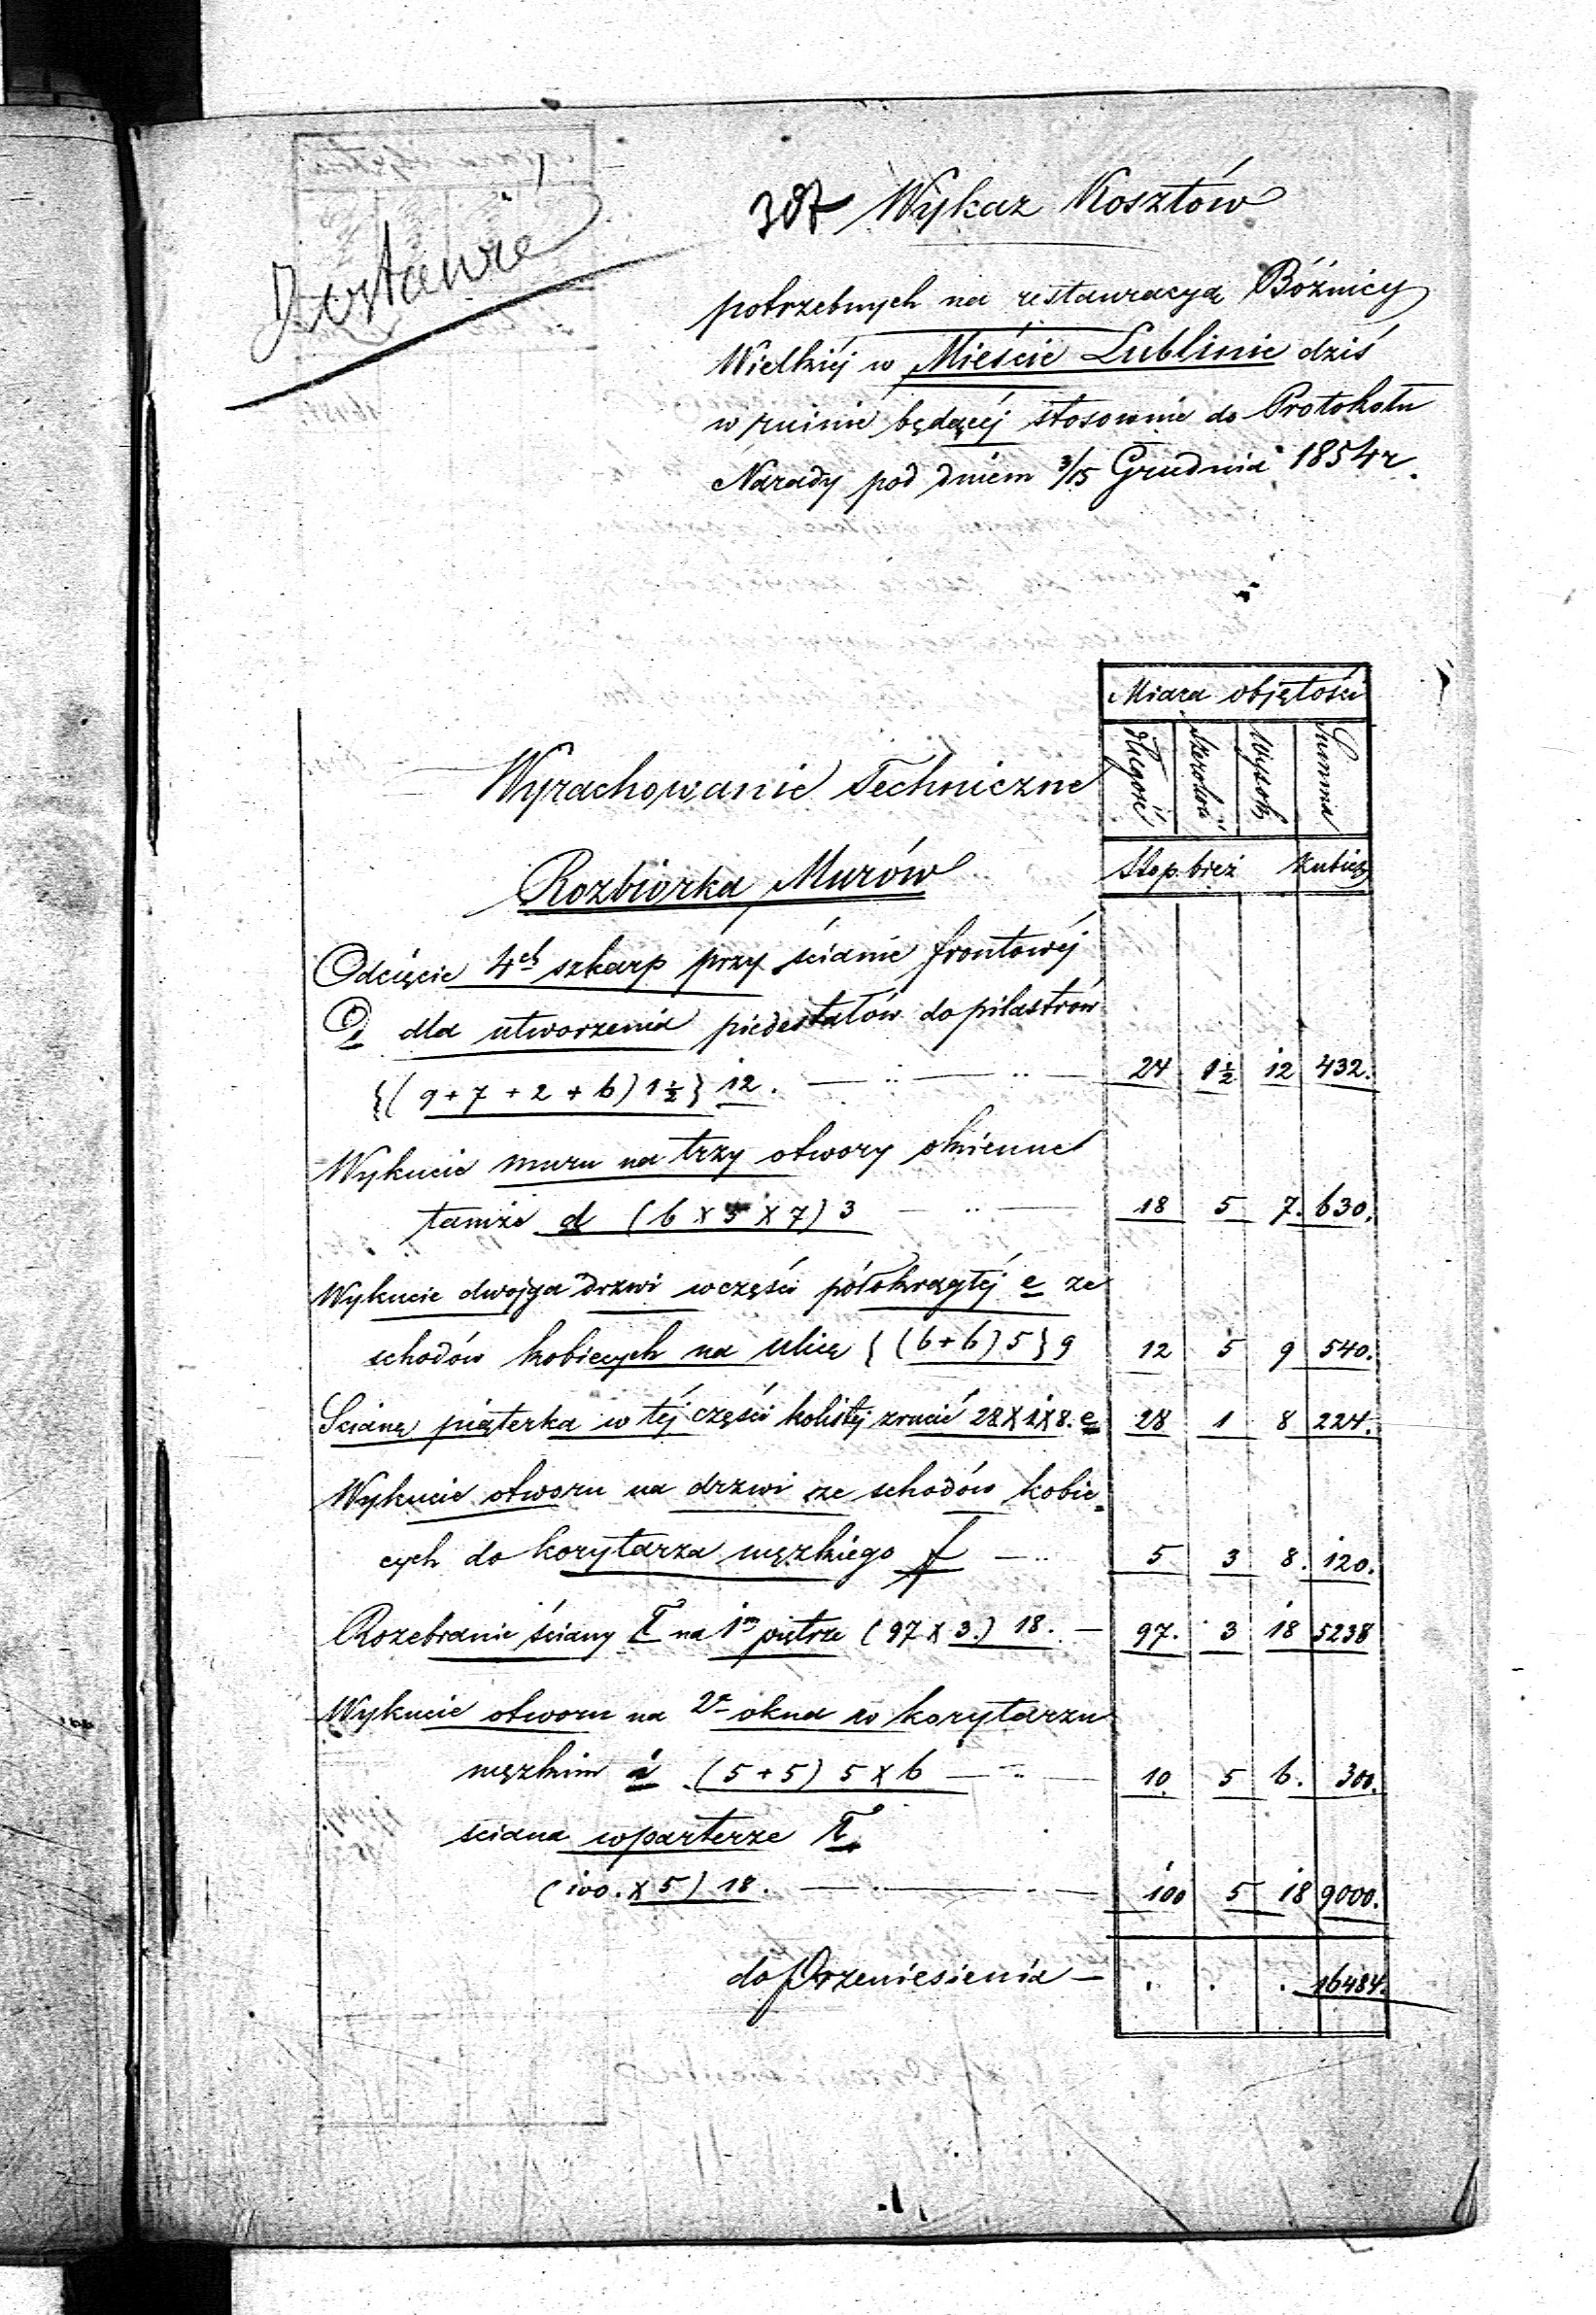 307 Wykaz Kosztów
potrzebnych na restauracyą Bóźnicy
Wielkiéj w Mieście Lublinie dziś
w ruinie będącéj stosownie do Protokołu
Narady pod dniem 3/15 Grudnia 1854 r.
Miara objętości
Długość Szerokość Wysok. Summa
Wyrachowanie Techniczne
Stop. bież Kubicz
Rozbiórka Murów
Odcięcie 4ch szkarp przy ścianie frontowéj
dla utworzenia piedestałów do pilastrów
{(9+7+2+6) 1½} 12. 24 1½ 12 432.
Wykucie muru na trzy otwory okienne
tamże d (6 X 5 X 7) 3 18 5 7. 630.
Wykucie dwojga drzwi w części półokrągłéj e ze
schodów kobiecych na ulicę {(6+6) 5} 9 12 5 9 540.
Scianę piąterka w téj części kolistéj zrucić 28 X 1 X 8. e 28 1 8 224.
Wykucie otworu na drzwi ze schodów kobie=
cych do korytarza męzkiego f 5 3 8. 120.
Rozebranie ściany na 1m piętrze (97 X 3.) 18. 97. 3 18 5238
Wykucie otworu na 2a okna w korytarzu
męzkim i (5+5) 5 X 6 10. 5 6. 300.
ściana w parterze
(100. X 5) 18. 100 5 18 9000.
do przeniesienia . . . 16484.